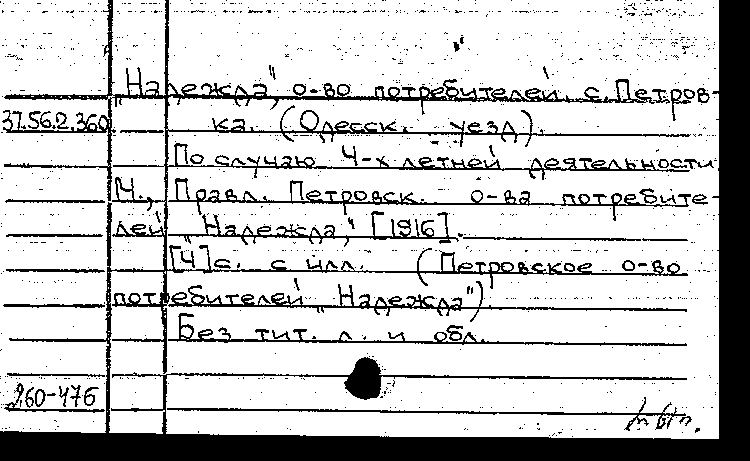 „Надежда", о-во потребителей. с. Петров-
37.56.2.360 ка. (Одесск. уезд).
По случаю 4-х летней деятельности
М., Правл. Петровск. о-ва потребите-
лей „Надежда", [1916].
[4]с. с илл. (Петровское о-во
потребителей „Надежда")
Без тит. л. и обл.
260-476